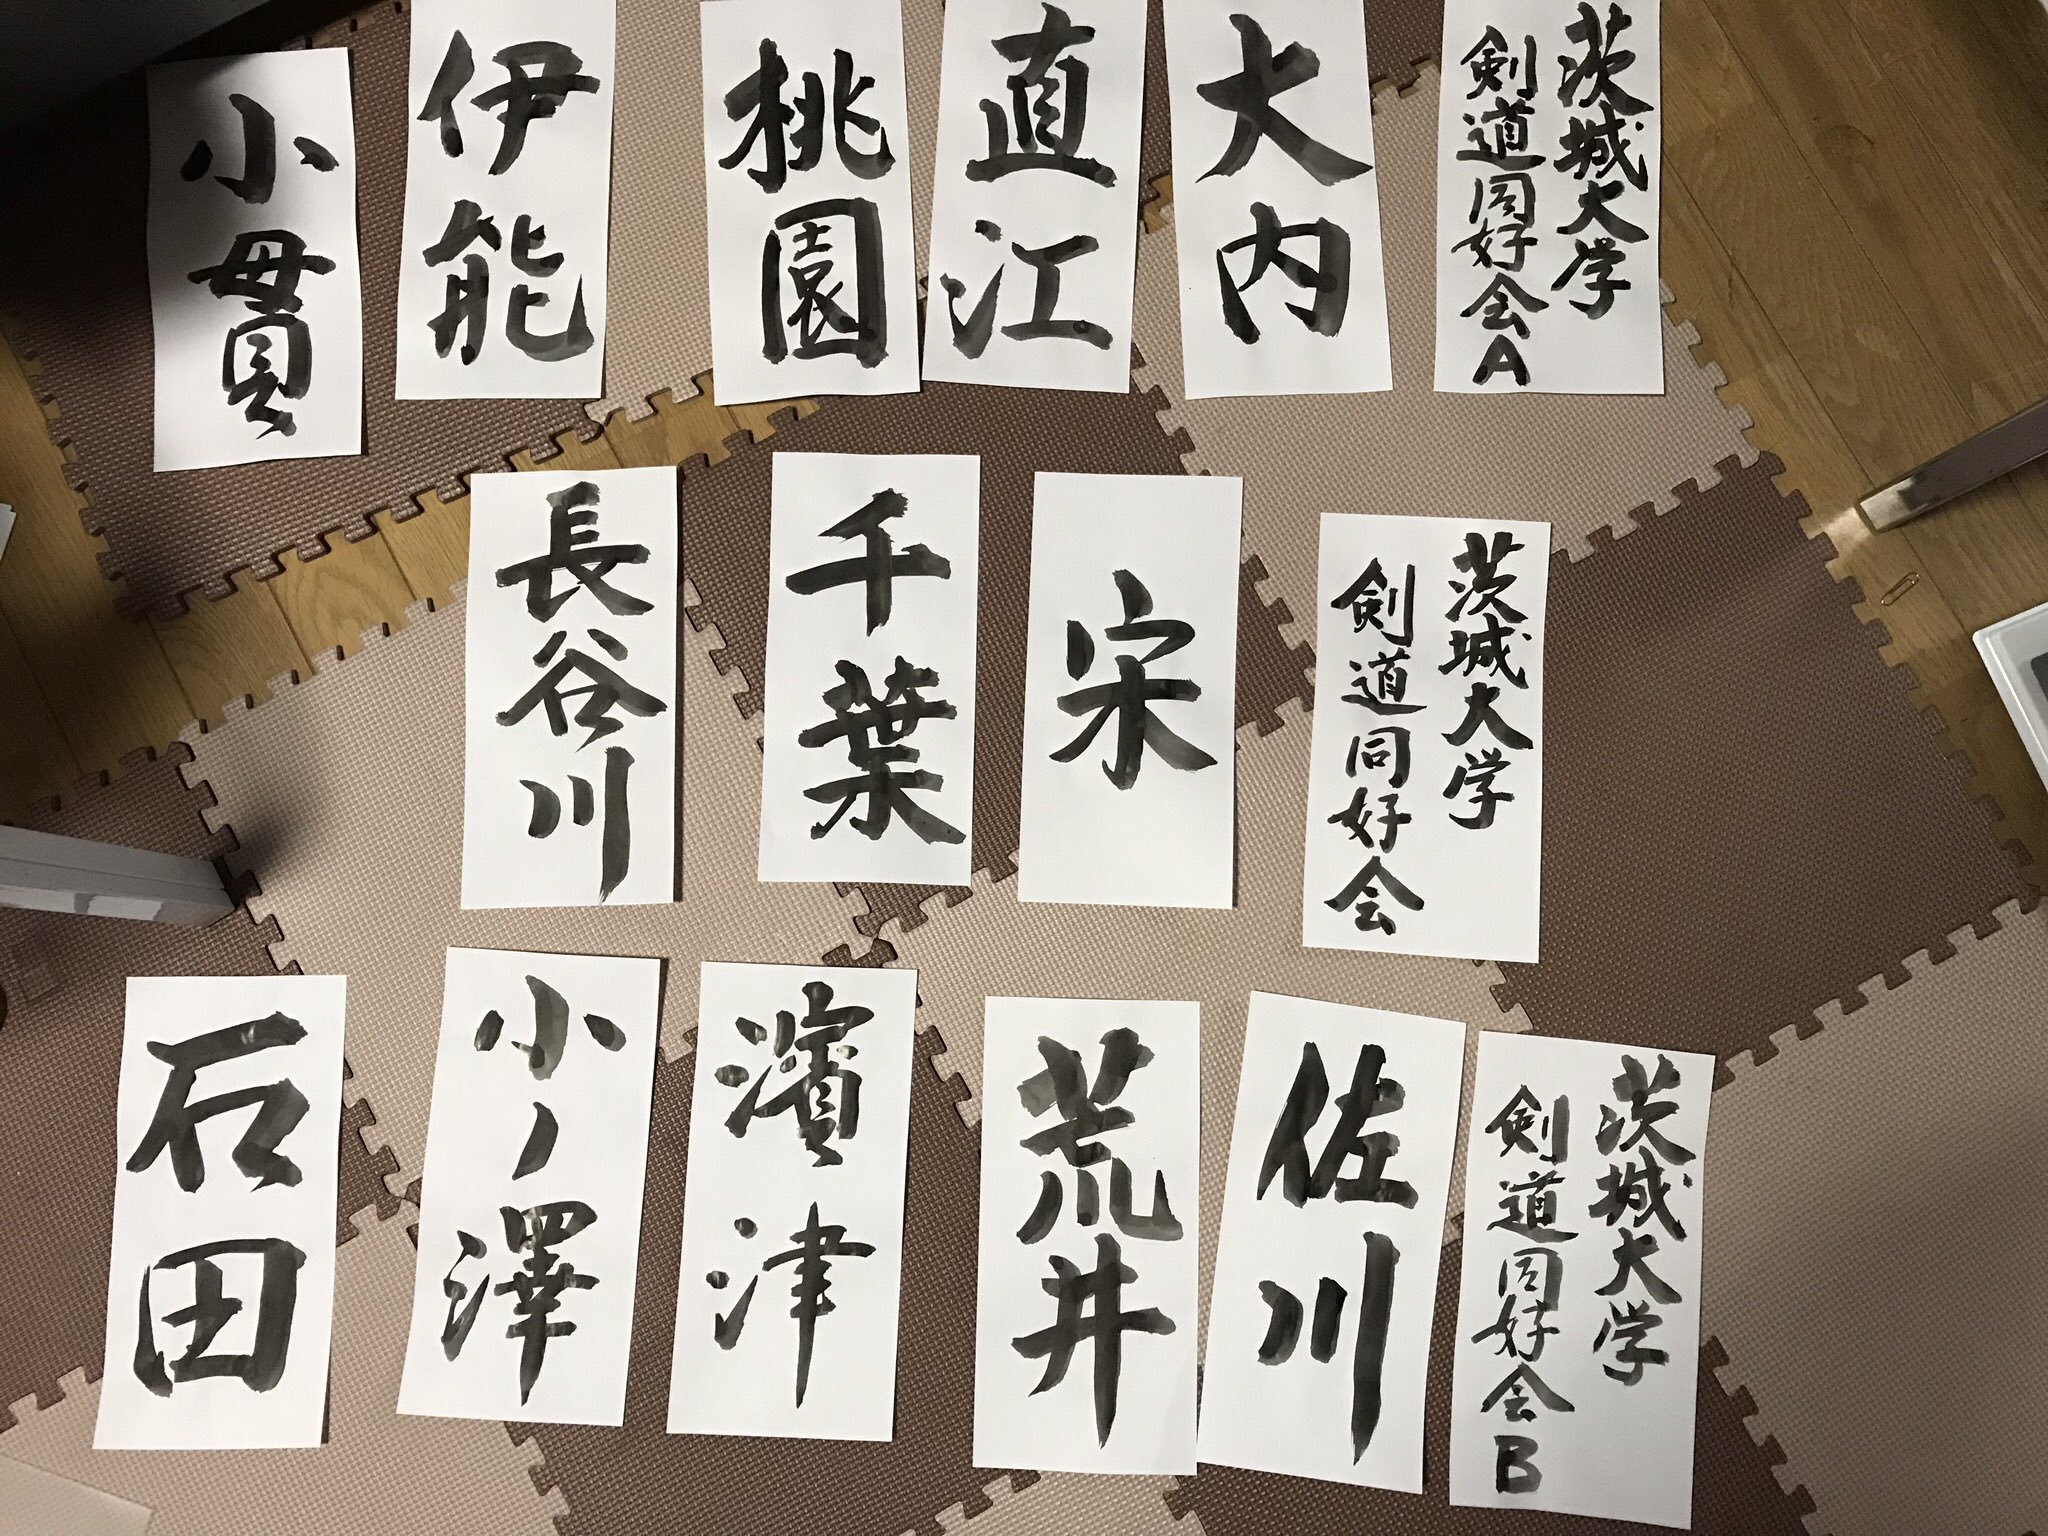 茨城大学
剣道同好会A
大内
直江
桃園
伊能
小貫
茨城大学
剣道同好会
宋
千葉
長谷川
茨城大学
剣道同好会B
佐川
荒井
濱津
小ノ澤
石田